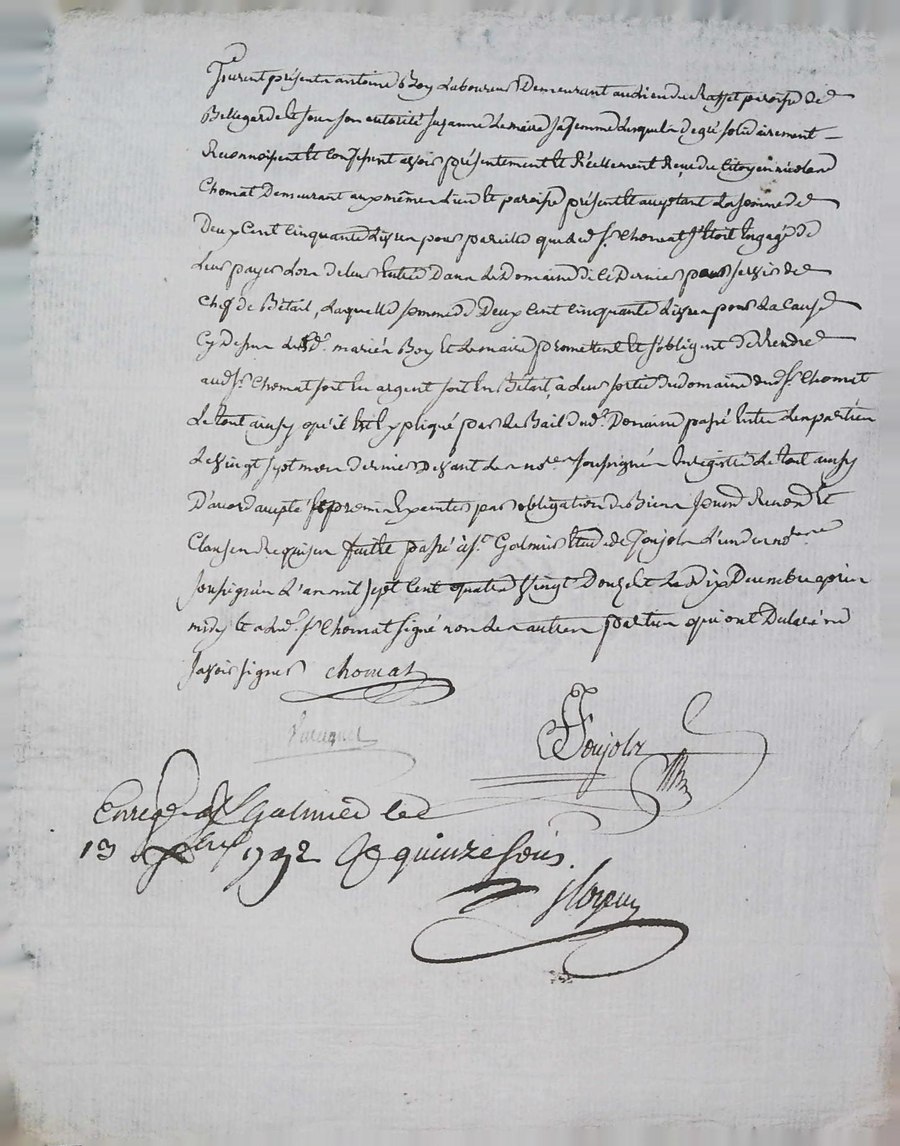 Furent présents antoine Boy Laboureur Demeurant au lieu du Rasset paroisse de
Bellegarde et sous son autorité suzanne Lemaire sa femme Lesquels de gré solidairement
Reconnoissent et confessent avoir présentement et Réellement Reçu du Citoyen nicolas
Chomat Demeurant aux mêmes Lieu et paroisse présent et acceptant La somme de
Deux Cent Cinquante Livres pour pareille que led. Sr. Chomat s'Etoit Engagé de
Leur payer Lors de leur Entrée Dans Le Domaine de Ce Dernier pour servir de
Chef de Bétail, Laquelle somme de Deux Cent Cinquante Livres pour La Cause
Cy Dessus Lesd. mariés Boy et Lemaire promettent et s'obligent de Rendre
aud. Sr. Chomat soit En argent soit En Bétail, à Leur sortie du domaine dud. Sr. Chomat
Le tout ainsy qu'il Est Expliqué par Le Bail dud. Domaine passé Entre Les parties
Le vingt sept mars Dernier Devant Les nores. soussignés Enregistré Le tout ainsy
D'accord accepté promis Exécuter par obligation de Biens soumis Renon et
Clauses Requises fait et passé à St. Galmier Etude de Soujols L'un des nores
soussignés L'an mil sept Cent quatre Vingt Douze et Le Dix Décembre après
midy et a Led. Sr. Chomat signé non Les autres parties qui ont Déclaré ne
savoir signer Chomat
Soujols
Enregé. à St Galmier le
13 Xbre 1792 R quinze sous.